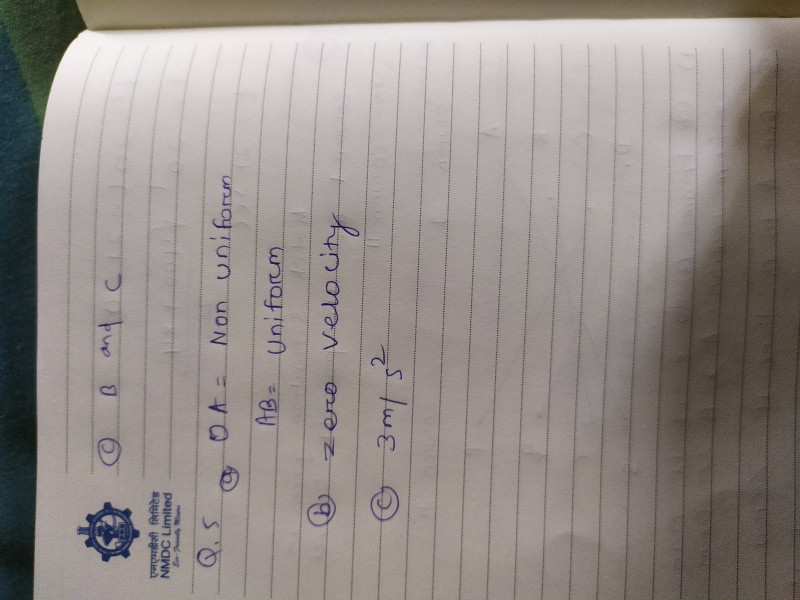 एनएमडीसी लिमिटेड
NMDC Limited
© B and C
Q.5 ⓐ OA = Non uniform
AB = Uniform
ⓑ zero velocity
ⓒ 3m/s²